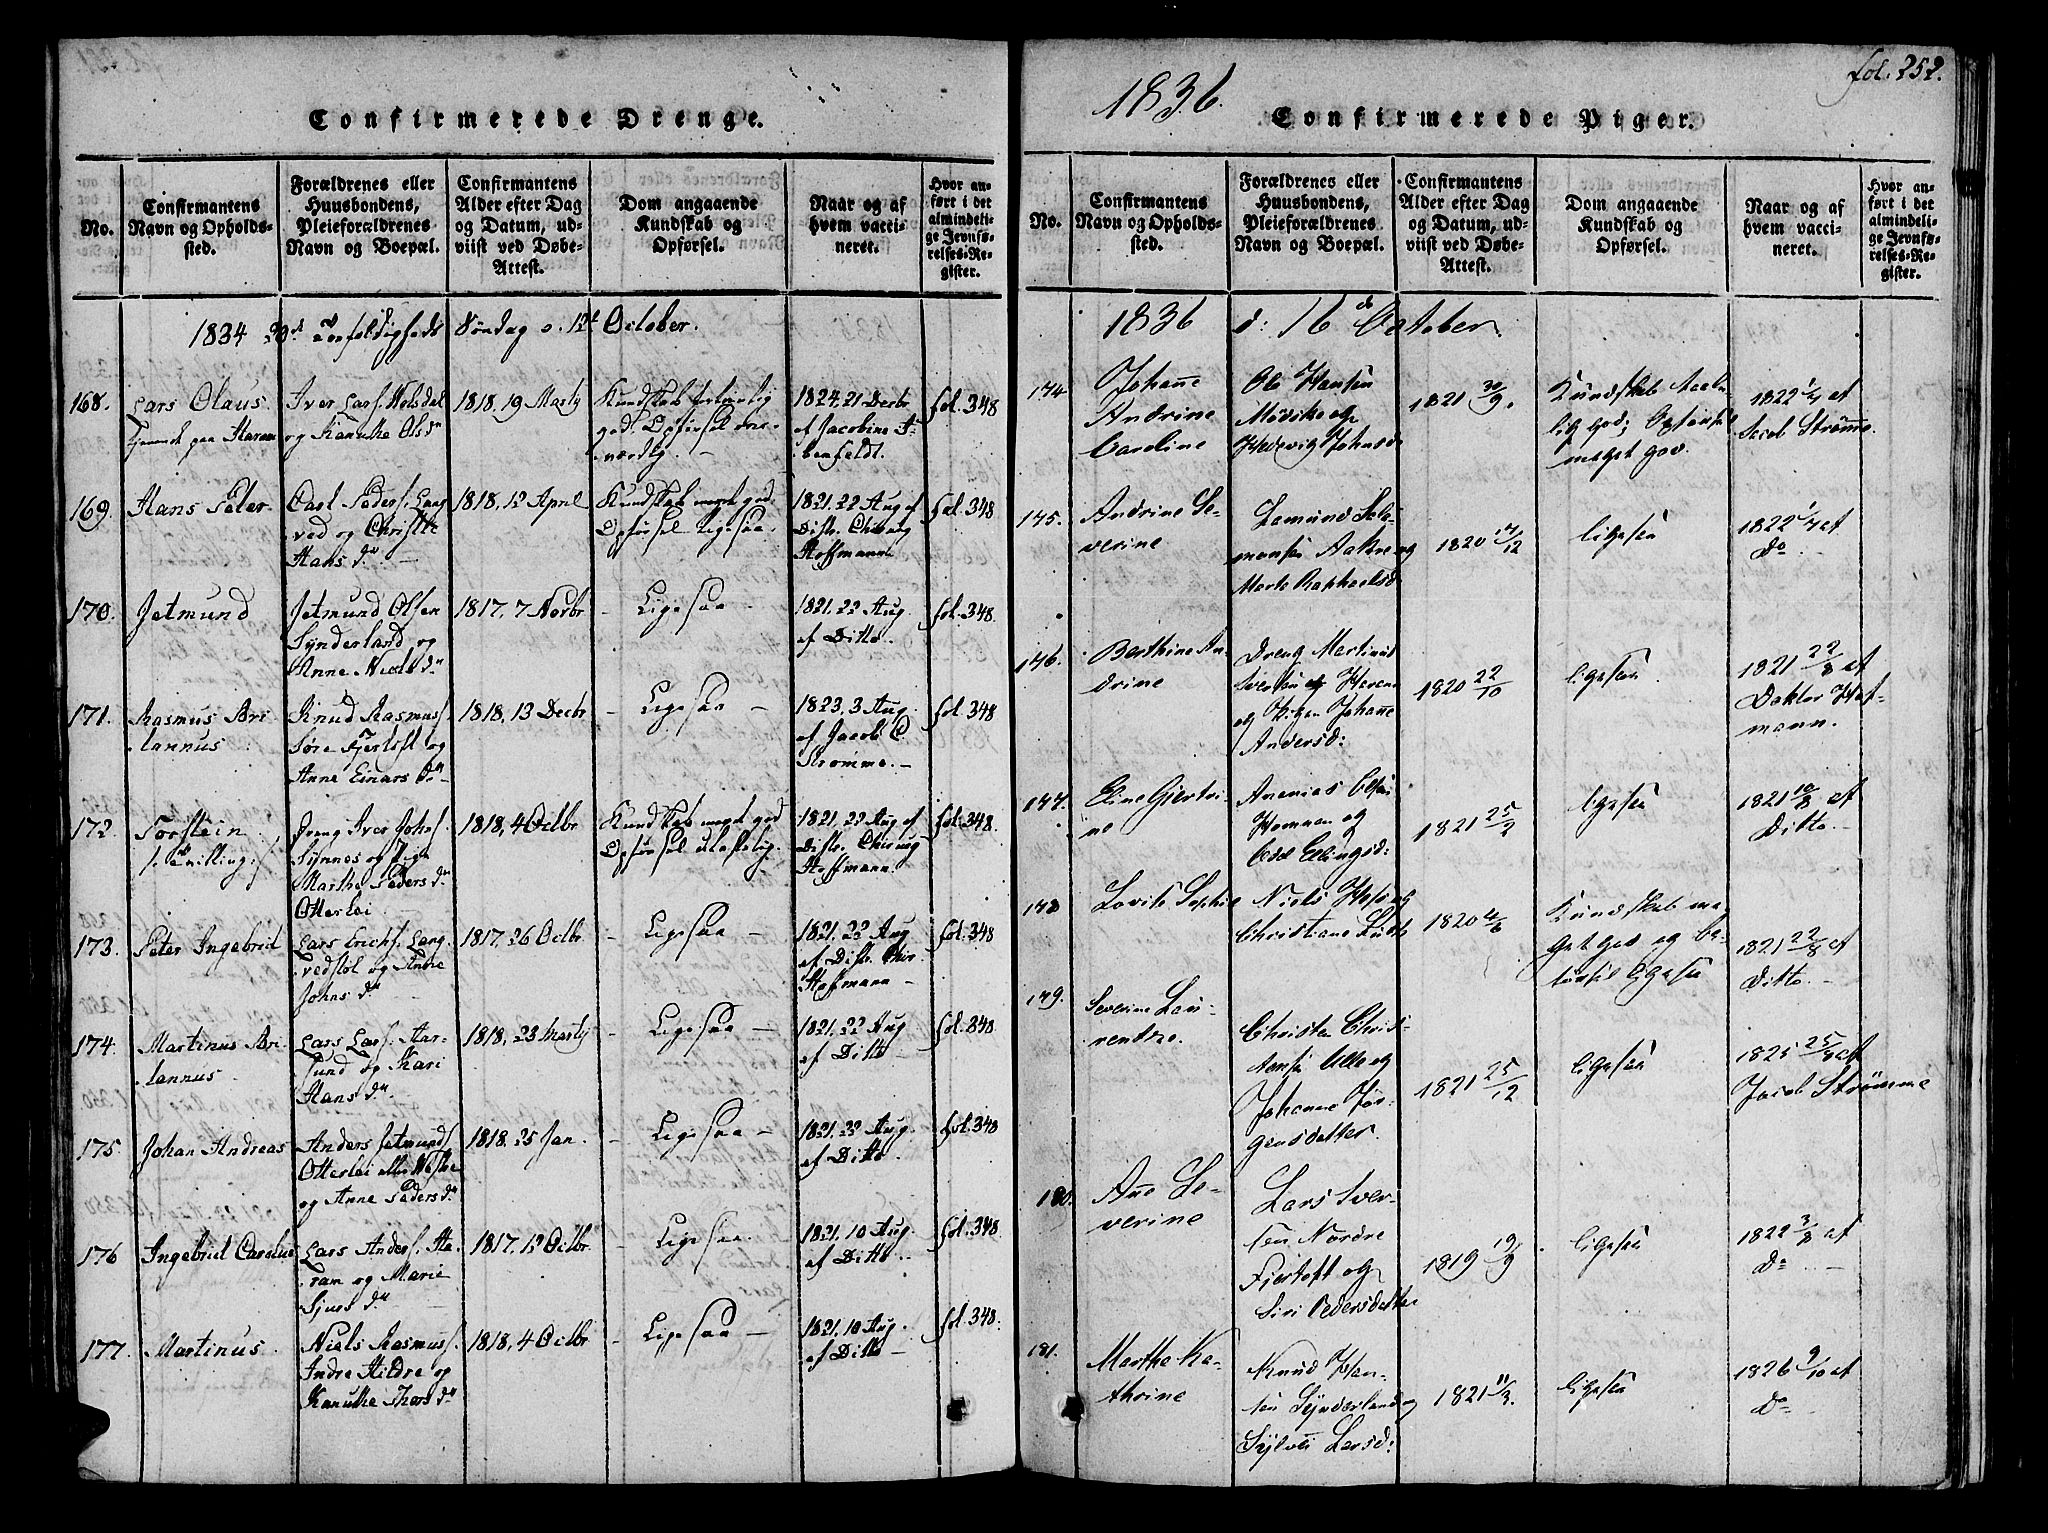 Confirmerede Drenge.
No.
Confirmantens
Navn og Opholds-
sted.
Forældrenes eller
Huusbondens,
Pleieforældrenes
Navn og Boepæl.
Confirmantens
Alder efter Dag
og Datum, ud-
viist ved Døbe-
Attest.
Dom angaaende
Kundskab og
Opførsel.
Naar og af
hvem vacci-
neret.
Hvor an-
ført i det
almindeli-
ge Jevnfø-
relses-Re-
gister.
1834 20de Trefoldigheds Søndag d. 12t October.
168.
Lars Olaus
paa Haram
Iver Larss. Helsdal
og Kanutke Ols dr
1818, 19 Martj
Kundskab
god. Opførsel
1824. 21 Decbr
af Jacobine
benfeldt.
fol. 348
169.
Hans Peter
Carl Peders. Lang
ved og Christi
Hans dr
1818, 12 April
Kundskab meget god.
Opførsel ligesaa.
1821. 22 Aug af
Distr. Chirurg
Hoffmann
fol. 348
170.
Jetmund
Jetmund Olsen
Synderland og
Anne Niels dr
1817, 7 Novbr
Ligesaa
1821. 22 Aug
af Ditto.
fol. 348.
171.
Rasmus Bri
tannus
Knud Rasmuss.
Søre Fjertoft og
Anne Einars dr
1818, 13 Decbr
Ligesaa
1823. 3 Aug.
af Jacob C.
Strømme.
fol. 348
172.
Torstein
/: Tvilling :/
Dreng Iver Johs.
Synnes og Pige
Marthe Peders dr
Otterlei
1818, 4 Octbr
Kundskab meget god
Opførsel ulastelig.
1821. 22 Aug af
Distr. Chirurg
Hoffmann.
fol. 348.
173.
Peter Ingebrit
Lars Erichs. Lang-
vedstøl og Anne
Johns dr
1817, 26 Octbr
Ligesaa
1821. 22 Aug
af Distr. Chir.
Hofmann
fol. 348
174.
Martinus Bri
tannus
Lars Lars. Aar-
sund og Kari
Hans dr
1818, 23 Martj
Ligesaa
1821. 22 Aug
af Ditto
fol. 348
175.
Johan Andreas
Anders Jetmunds.
Otterlei
og Anne Peders dr
1818. 25 Jan.
Ligesaa
1821. 22 Aug.
af Ditto.
fol. 348
176
Ingebrit Carolus
Lars Anders. Ha-
ram og Marie
Sjurs dr
1817. 12 Octbr
Ligesaa.
1821. 10 Aug.
af Ditto.
fol. 348
177.
Martinus
Niels Rasmuss.
Indre Hildre og
Kanutke Thors dr
1818, 4 Octbr
Ligesaa
1821. 10 Aug.
af Ditto
fol. 348.
fol. 252.
1836.
Confirmerede Piger.
No.
Confirmantens
Navn og Opholds-
sted.
Forældrenes eller
Huusbondens,
Pleieforældrenes
Navn og Boepæl.
Confirmantens
Alder efter Dag
og Datum, ud-
viist ved Døbe-
Attest.
Dom angaaende
Kundskab og
Opførsel.
Naar og af
hvem vacci-
neret.
Hvor an-
ført i det
almindeli-
ge Jevnfø-
relses-Re-
gister.
1836 d: 16de October.
174
Johanne
Andrine
Caroline
Ole Hansen
og
Hedevig Johnsd
1821 30/9.
Kundskab
god; Opførsel
meget god.
1822 1/4 af
Jacob Strømme
175.
Andrine Se-
verine
Lamund Salo-
monsen Aakre og
Marte Raphaelsd
1820 17/12
ligesaa
1822 1/4 af
Do
176.
Berthine An-
drine
Dreng Martinus
Haram
og Pigen Johanne
Andersd:
1820 22/10
ligesaa
1821 22/8 af
Doktor Hof-
mann.
177.
Eline Giertri-
ne
Ananias Olsen
Hamnen og
Elingsd:
1821 25/2
ligesaa
1821 10/8 af
Ditto.
178
Lovise Sophie
Niels
Christiane
1820
Kundskab me-
get god og Op-
førsel ligesaa
1821 22/8 af
Ditto.
179.
Severine Lau-
rentze.
Christen Christ-
ensen Ulle og
Johanne Jør-
gensdatter.
1821 25/12
ligesaa
1825 25/9 af
Jacob Strømme
180.
Ane Se-
verine
Lars Iver-
sen Nordre
Fjertoft og
Siri Pedersdatter
1819 19/9
ligesaa
1822 3/8 af
Do
181.
Marthe Ka-
thrine
Knud Han-
sen Synderland og
Sylvei Larsd:
1821 11/3.
ligesaa
1826 9/10 af
Do